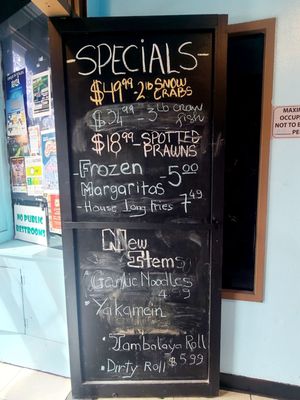 -SPECIALS-
$49.99-2 lb SNOW
CRABS
$34.99-3 lb craw
fish
$18.99-SPOTTED
PRAWNS
Frozen
Margaritas -5.00
-House Long fries 7.49
New
Items
Garlic Noodles
Yakamein
Jambalaya Roll
Dirty Roll $5.99
NO PUBLIC
RESTROOMS
MAXIM
OCCUP
NOT TO E